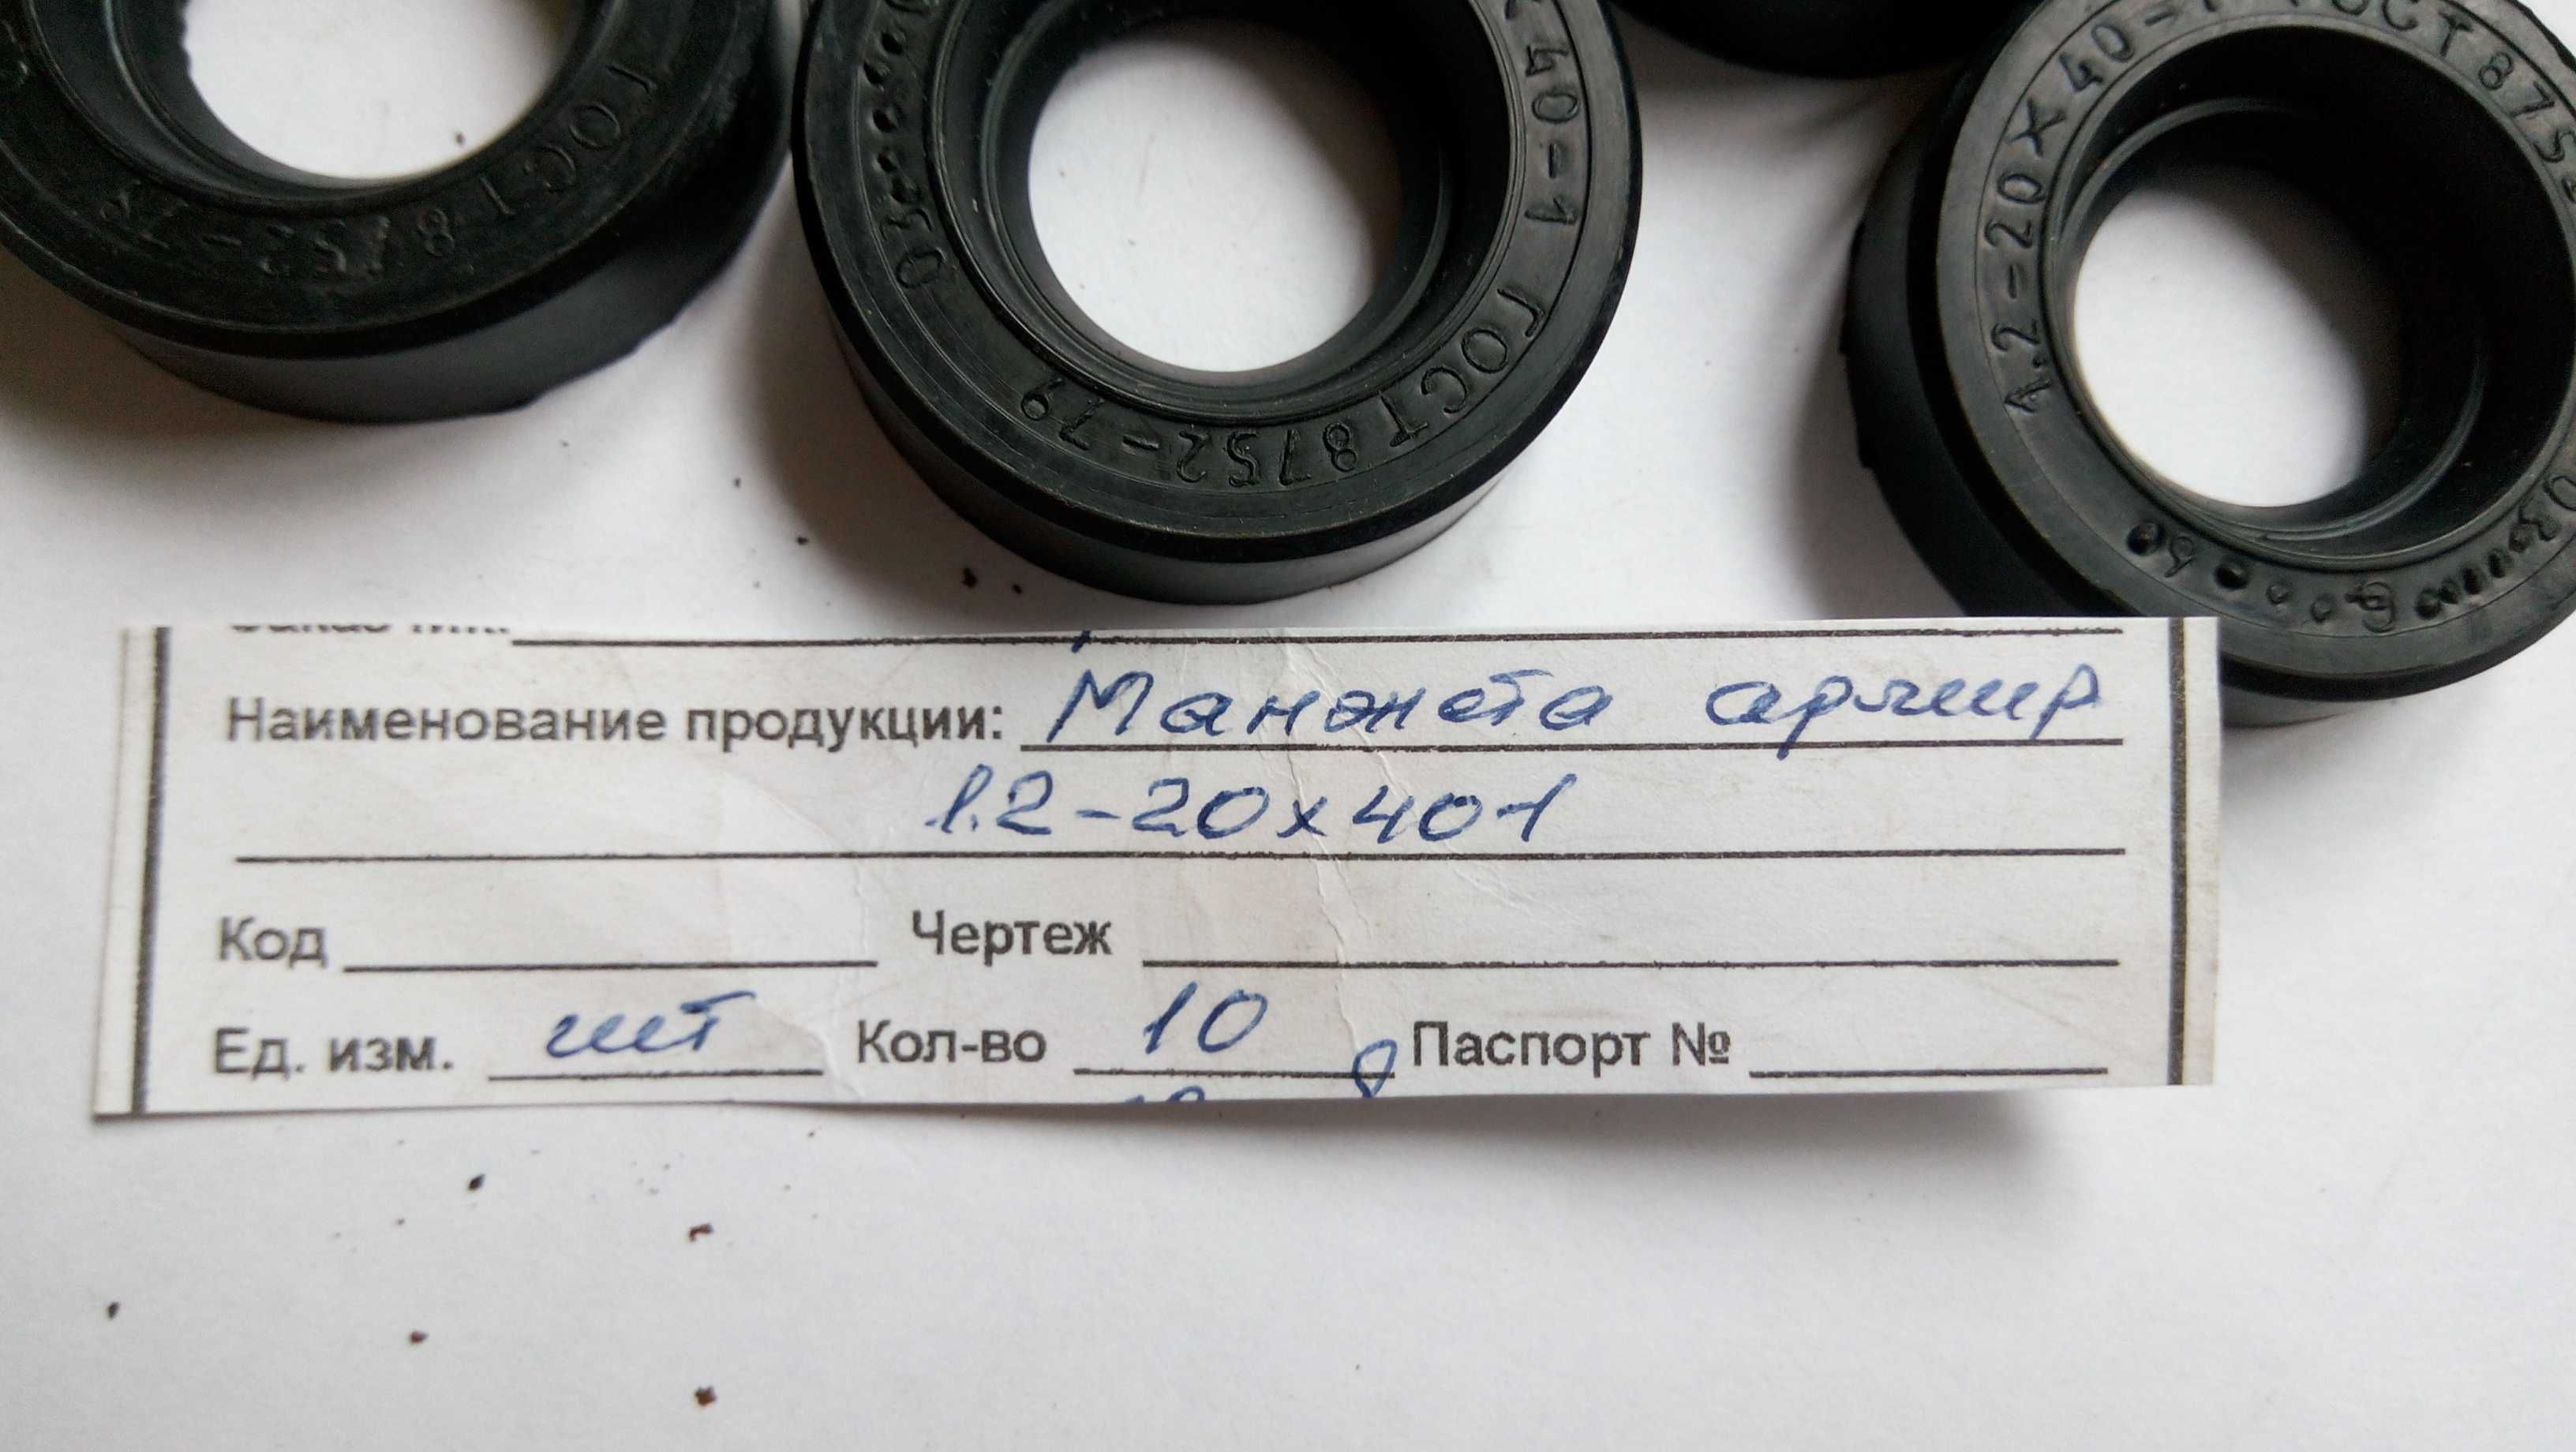 ГОСТ 8752-79
40-1 ГОСТ 8752-79
1.2-20Х40-1
Наименование продукции: Манжета армир
1.2-20х40-1
Код Чертеж
Ед. изм. шт Кол-во 10 Паспорт №